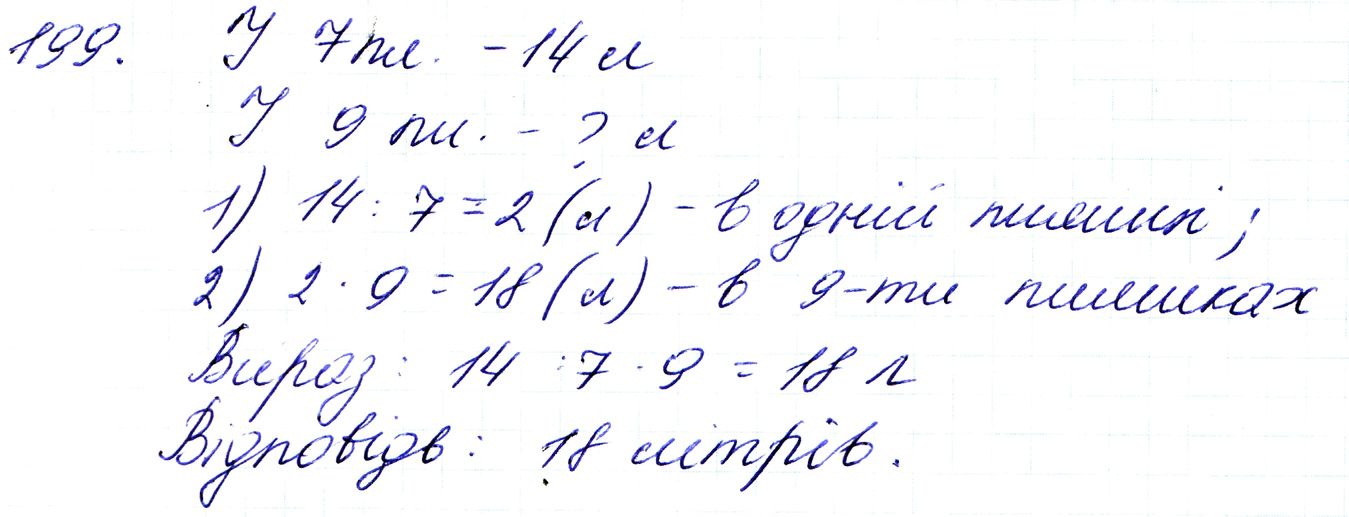 199. У 7 пл. - 14 л
У 9 пл. - ? л
1) 14 : 7 = 2 (л) - в одній пляшці;
2) 2 · 9 = 18 (л) - в 9-ти пляшках
Вираз: 14 : 7 · 9 = 18 л
Відповідь: 18 літрів.